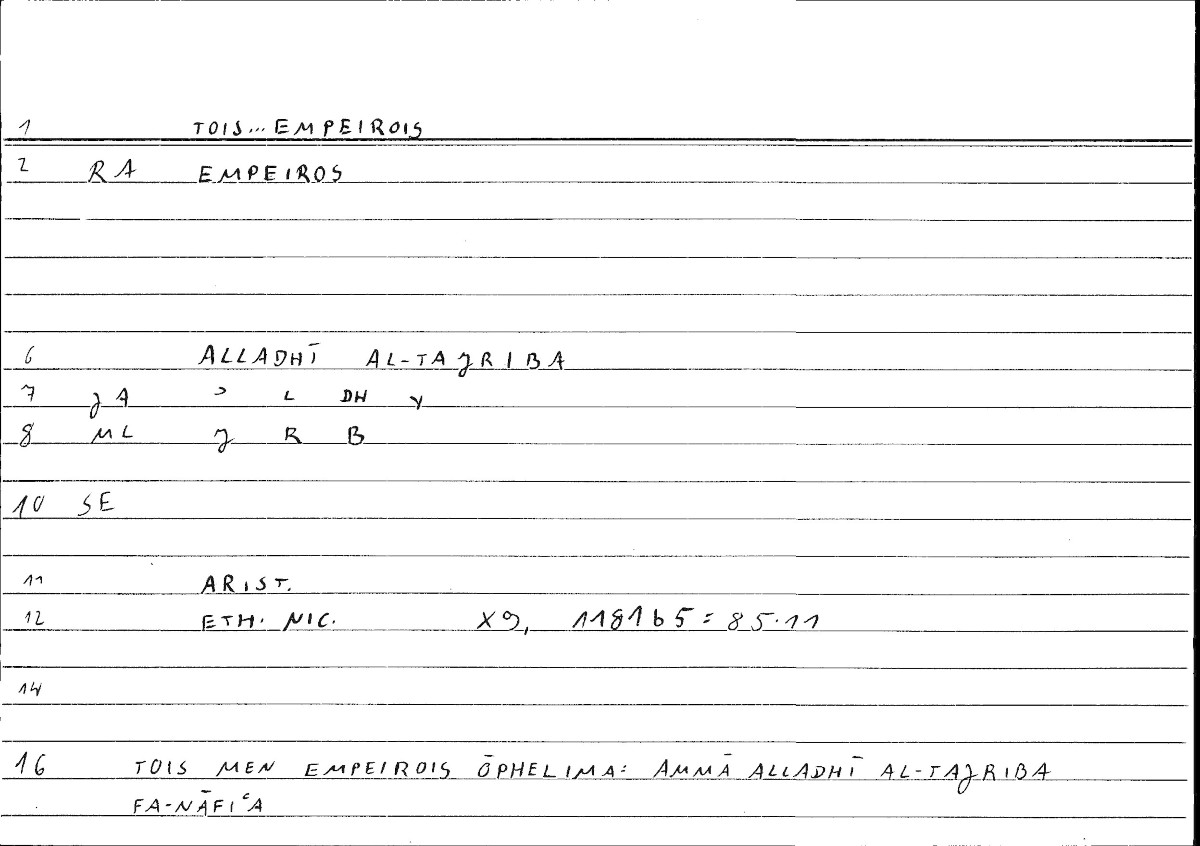 1 TOIS...EMPEIROIS
2 RA EMPEIROS
6 ALLADHĪ AL-TAJRIBA
7 JA ʾ L DH Y
8 ML J R B
10 SE
11 ARIST.
12 ETH. NIC. X9, 1181b5 = 85.11
14
16 TOIS MEN EMPEIROIS ŌPHELIMA: AMMĀ ALLADHĪ AL-TAJRIBA
FA-NĀFIʿA